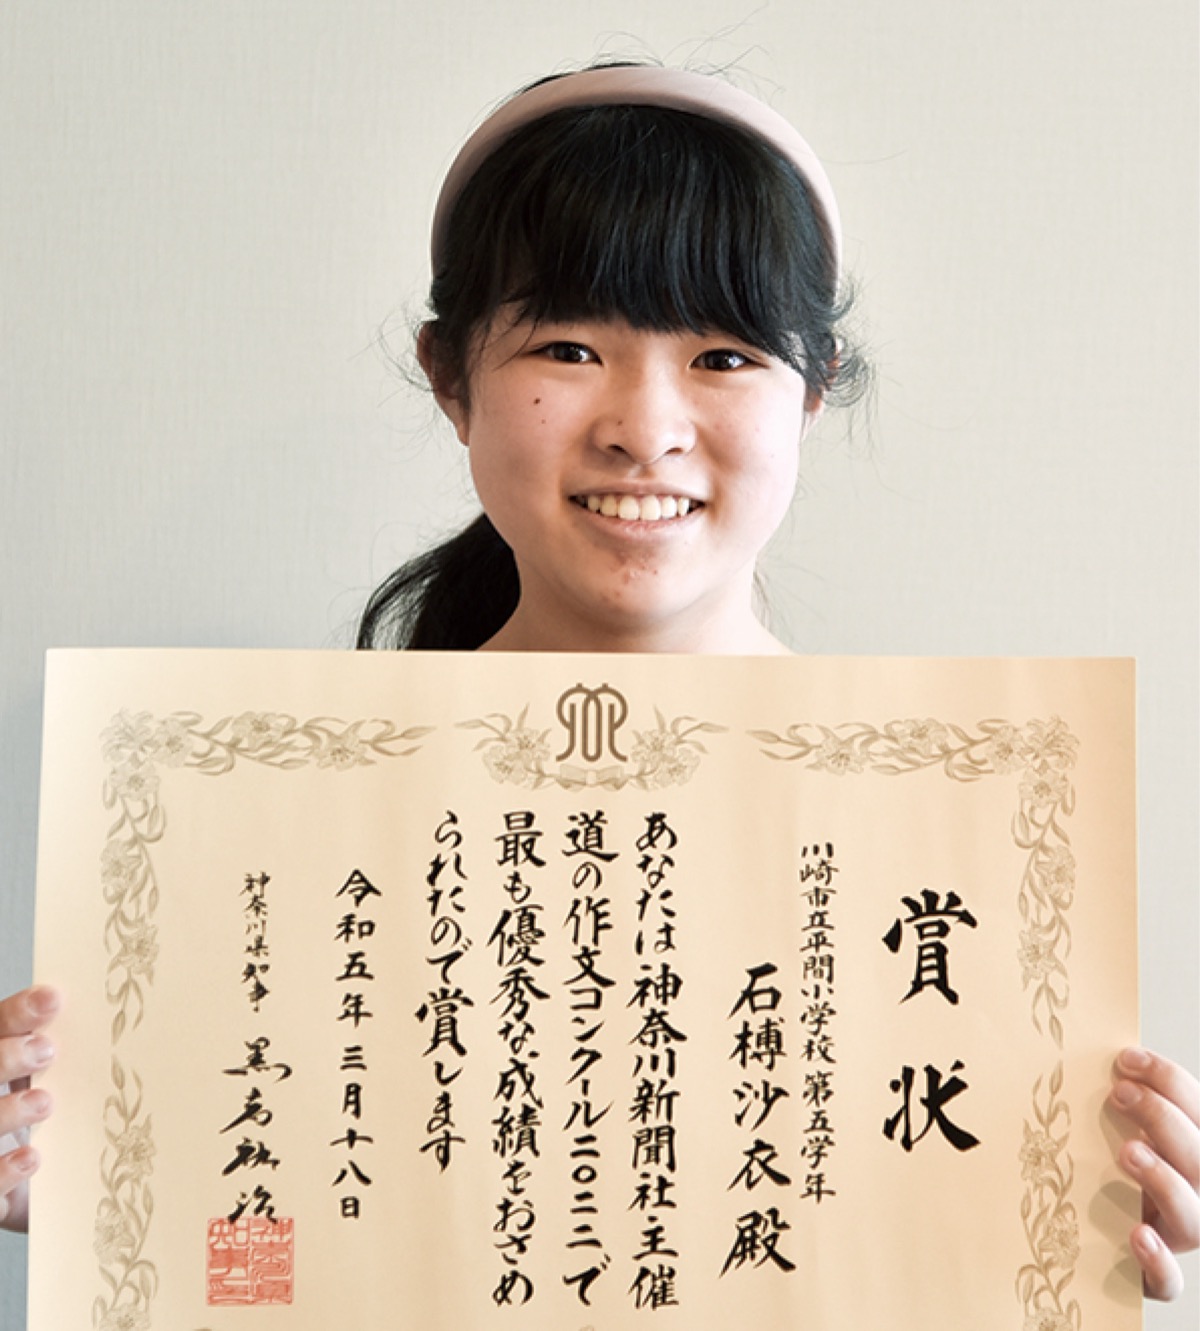 賞状
川崎市立平間小学校 第五学年
石榑沙衣殿
あなたは神奈川新聞社主催
道の作文コンクール二〇二二で
最も優秀な成績をおさめ
られたので賞します
令和五年三月十八日
神奈川県知事 黒岩祐治